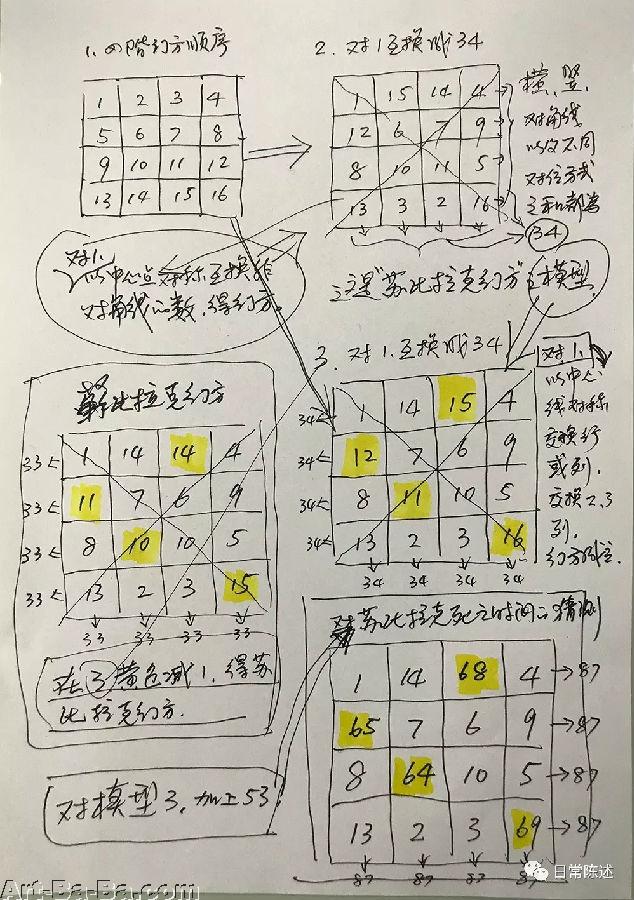 1. 四階幻方顺序
1 2 3 4
5 6 7 8
9 10 11 12
13 14 15 16
2. 对1互换成34
1 15 14 4
12 6 7 9
8 10 11 5
13 3 2 16
横、竖、
对角线
以及不同
对位方式
之和都为
34
这是"苏比拉克幻方"之模型.
对1.
以中心点对称互换非
对角线的数, 得幻方.
3. 对1.互换成34
1 14 15 4
12 7 6 9
8 11 10 5
13 2 3 16
34
34
34
34
34 34 34 34
对1.
以中心
线对称
交换行
或列,
交换2.3
列,
幻方成立.
苏比拉克幻方
1 14 14 4
11 7 6 9
8 10 10 5
13 2 3 15
33
33
33
33
33 33 33 33
在3黄色减1, 得苏
比拉克幻方.
对模型3, 加上53
对苏比拉克死之时间的猜测
1 14 68 4 → 87
65 7 6 9 → 87
8 64 10 5 → 87
13 2 3 69 → 87
87 87 87 87
日常陈述
Art-Ba-Ba.com